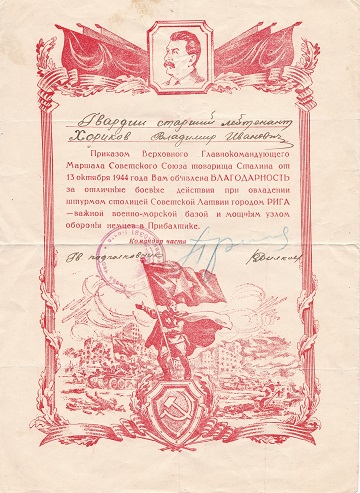 Гвардии старший лейтенант
Хориков Владимир Иванович
Приказом Верховного Главнокомандующего
Маршала Советского Союза товарища Сталина от
13 октября 1944 года Вам объявлена БЛАГОДАРНОСТЬ
за отличные боевые действия при овладении
штурмом столицей Советской Латвии городом РИГА
—важной военно-морской базой и мощным узлом
обороны немцев в Прибалтике.
Командир части
Гв подполковник